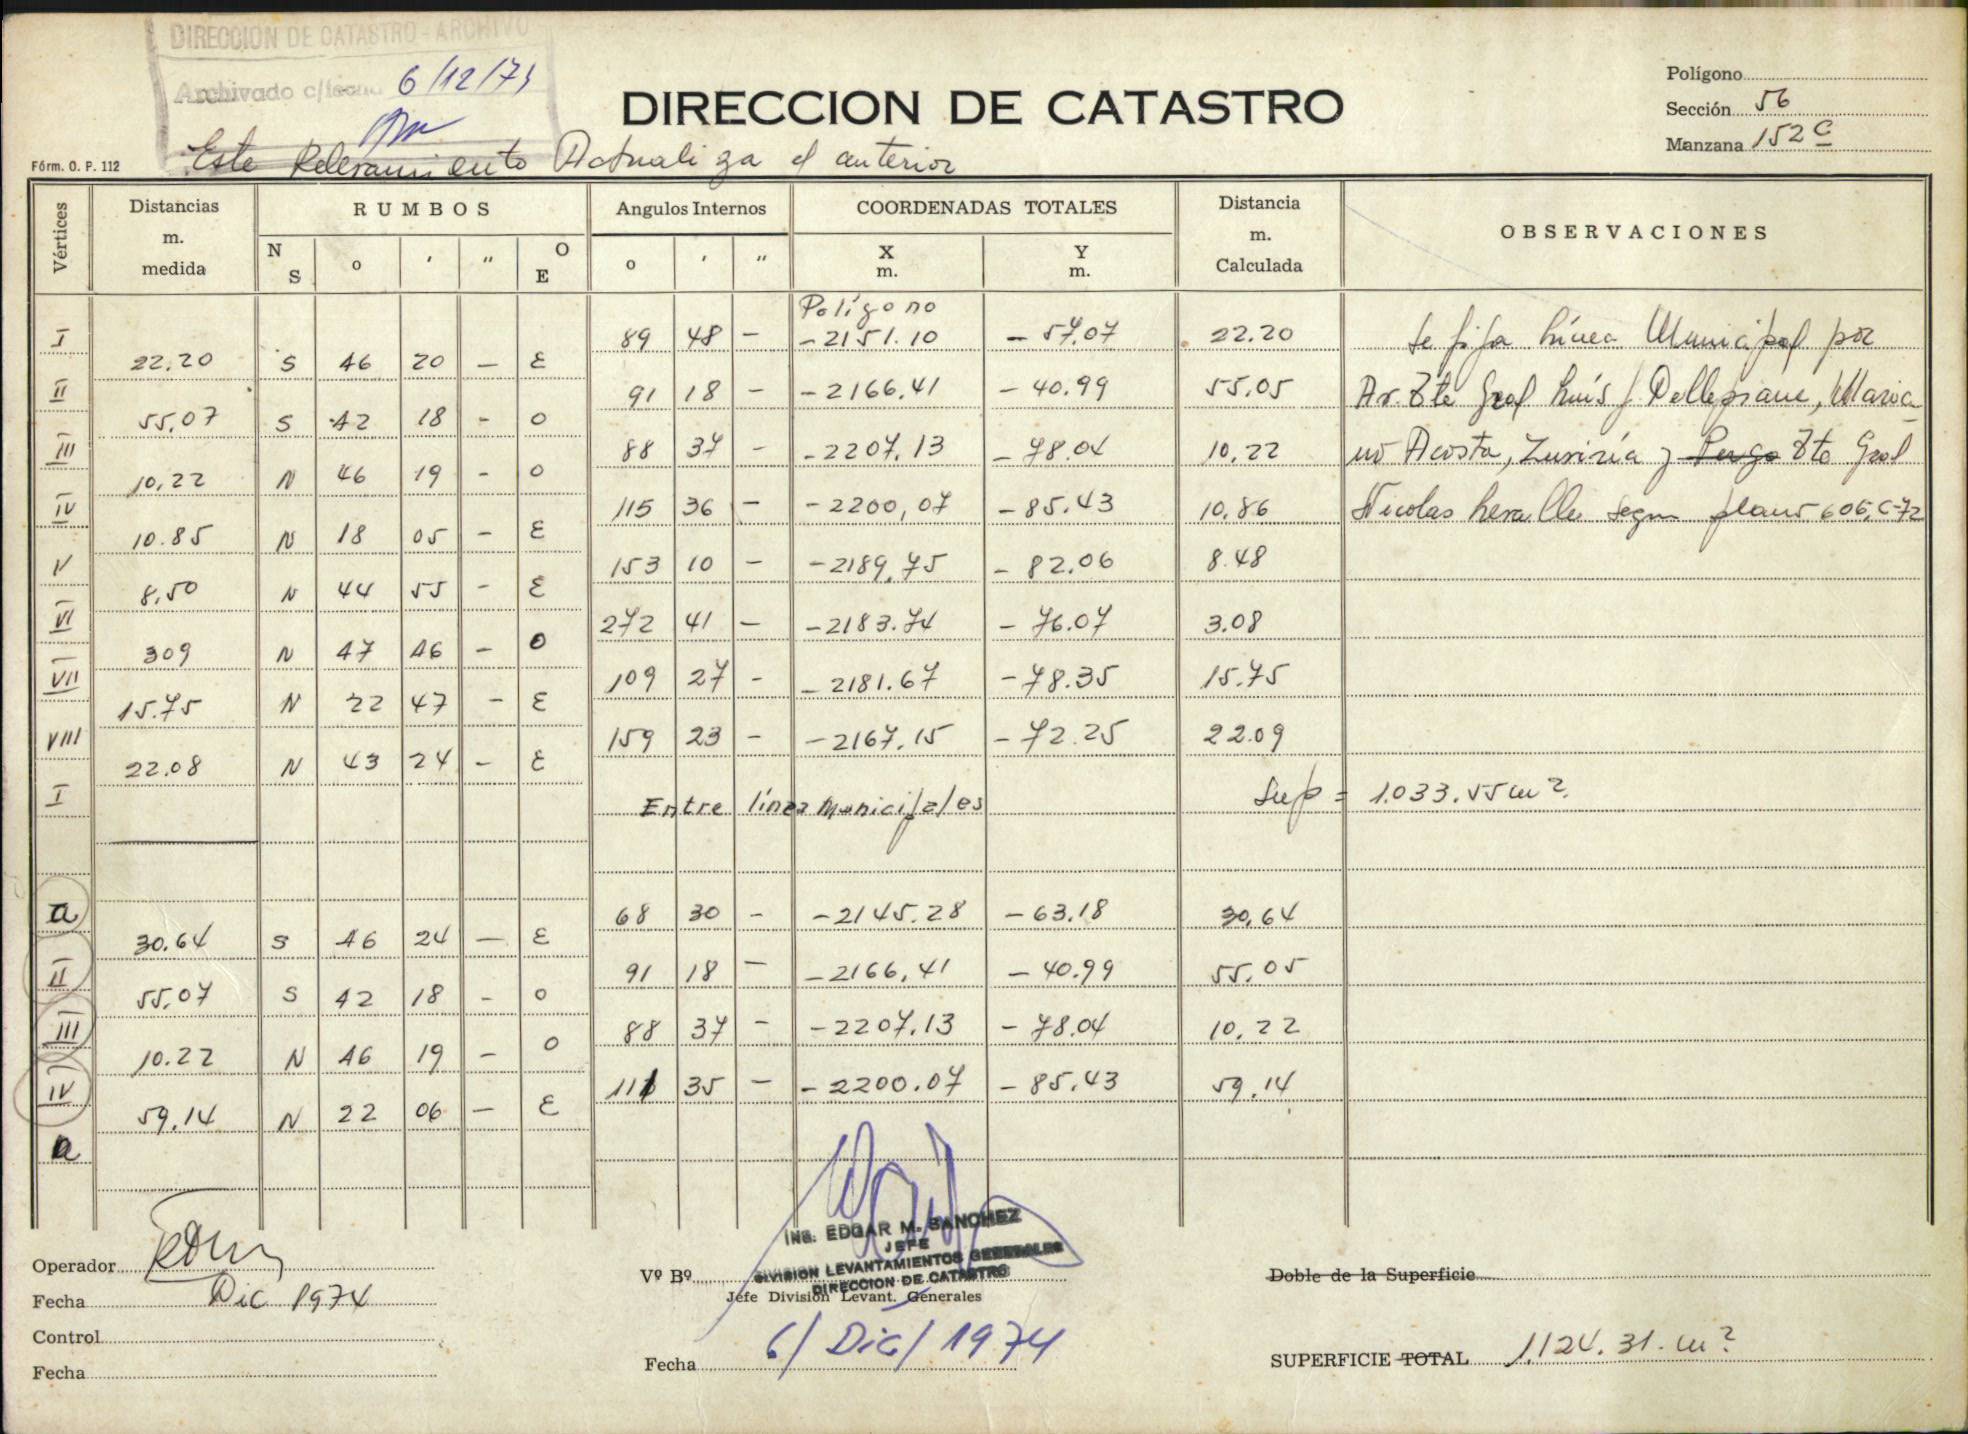 DIRECCION DE CATASTRO - ARCHIVO
Archivado c/fecha 6/12/74
DIRECCION DE CATASTRO
Polígono
Sección 56
Manzana 152 C
Fórm. O. P. 112
Este Relevamiento Actualiza el anterior
Vértices Distancias m. medida RUMBOS Angulos Internos COORDENADAS TOTALES Distancia m. Calculada OBSERVACIONES
N S o ' " O E o ' " X m. Y m.
Polígono
I 89 48 – -2151.10 - 57.07 22.20 Se fija Línea Municipal por
22.20 S 46 20 – E
II 91 18 – -2166.41 - 40.99 55.05 Av. Tte Gral Luis J Dellepiane, Maria
55.07 S 42 18 – O
III 88 37 – -2207.13 - 78.04 10,22 no Acosta, Zuviría y Tte Gral
10,22 N 46 19 – O
IV 115 36 – -2200,07 - 85.43 10.86 Nicolas Levalle segun plano 606,C-72
10.85 N 18 05 – E
V 153 10 – -2189,75 - 82.06 8.48
8,50 N 44 55 – E
VI 272 41 – -2183.74 - 76.07 3.08
309 N 47 46 – O
VII 109 27 – -2181.67 - 78.35 15.75
15.75 N 22 47 – E
VIII 159 23 – -2167,15 - 72.25 22.09
22.08 N 43 24 – E
I Entre línea Municipales Sup = 1.033.55 m2.
a 68 30 – -2145.28 - 63.18 30,64
30.64 S 46 24 – E
II 91 18 – -2166,41 - 40.99 55.05
55,07 S 42 18 – O
III 88 37 – -2207,13 - 78.04 10,22
10.22 N 46 19 – O
IV 111 35 – -2200.07 - 85.43 59,14
59,14 N 22 06 – E
a
ING. EDGAR M. SANCHEZ
JEFE
DIVISION LEVANTAMIENTOS GENERALES
DIRECCION DE CATASTRO
Operador
Vº Bº
Jefe División Levant. Generales
Doble de la Superficie
Fecha Dic 1974
Control
Fecha 6/ Dic/ 1974
SUPERFICIE TOTAL 1,124.31. m2
Fecha